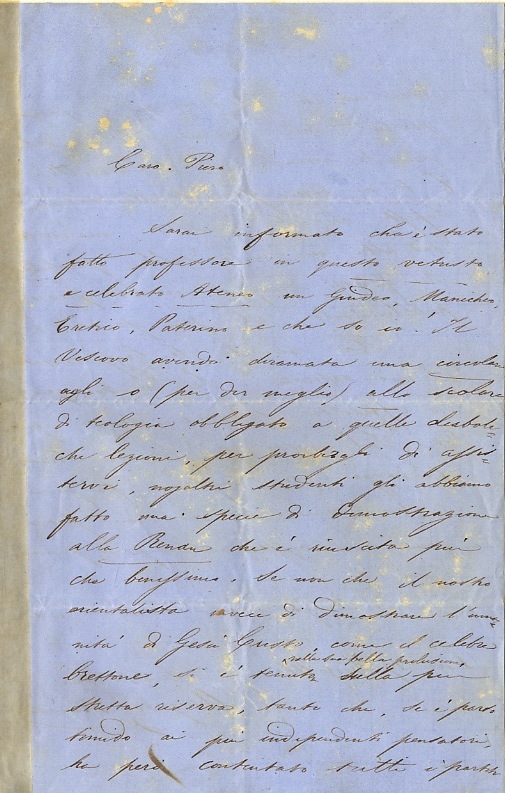 Caro Piero
Sarai informato che è stato
fatto professore in questo vetusto
e celebrato Ateneo un Giudeo, Manicheo,
Eretico, Paterino e che so io! Il
Vescovo avendo diramata una circolar
agli o (per dir meglio) allo scolare
di teologia obbligato a quelle diaboli-
che lezioni, per proibirgli di assi-
stervi, noialtri studenti gli abbiamo
fatto una specie di dimostrazione
alla Renan che è riuscita più
che benissimo. Se non che il nostro
orientalista invece di dimostrare l'uma-
nità di Gesù Cristo, come il celebre
nella sua bella prolusione,
brettone, si è tenuto sulla più
stretta riserva, tanto che, se è
ai più indipendenti pensatori,
ha però contentato tutti i partiti